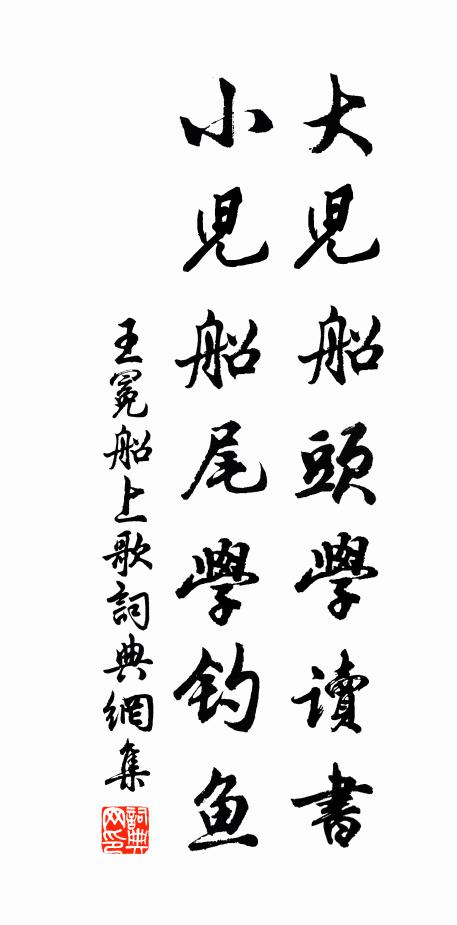 大児船頭學读書
小児船尾學钓鱼
王冕船上歌詞典網集
詞典网印